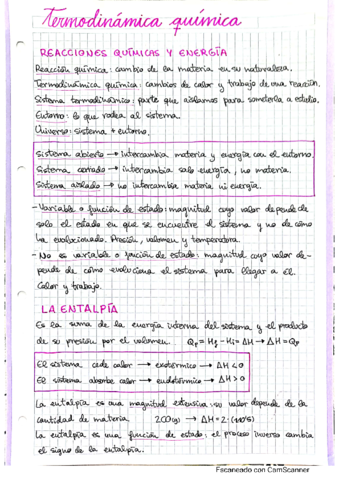 Termodinámica química
REACCIONES QUÍMICAS Y ENERGÍA
Reacción química: cambio de la materia en su naturaleza.
Termodinámica química: cambios de calor y trabajo de una reacción.
Sistema termodinámico: parte que aislamos para someterla a estudio.
Entorno: lo que rodea al sistema.
Universo: sistema + entorno.
Sistema abierto → intercambia materia y energía con el entorno.
Sistema cerrado → intercambia solo energía, no materia.
Sistema aislado → no intercambia materia ni energía.
- Variable o función de estado: magnitud cuyo valor depende de
solo el estado en que se encuentre el sistema y no de cómo
ha evolucionado. Presión, volumen y temperatura.
- No es variable o función de estado: magnitud cuyo valor de-
pende de cómo evoluciona el sistema para llegar a él.
Calor y trabajo.
LA ENTALPÍA
Es la suma de la energía interna del sistema y el producto
de su presión por el volumen. Qp = Hf - Hi = ΔH → ΔH = Qp
El sistema cede calor → exotérmico → ΔH < 0
El sistema absorbe calor → endotérmico → ΔH > 0
La entalpía es una magnitud extensiva: su valor depende de la
cantidad de materia 200(g) → ΔH = 2·(-110'5)
La entalpía es una función de estado: el proceso inverso cambia
el signo de la entalpía.
Escaneado con CamScanner